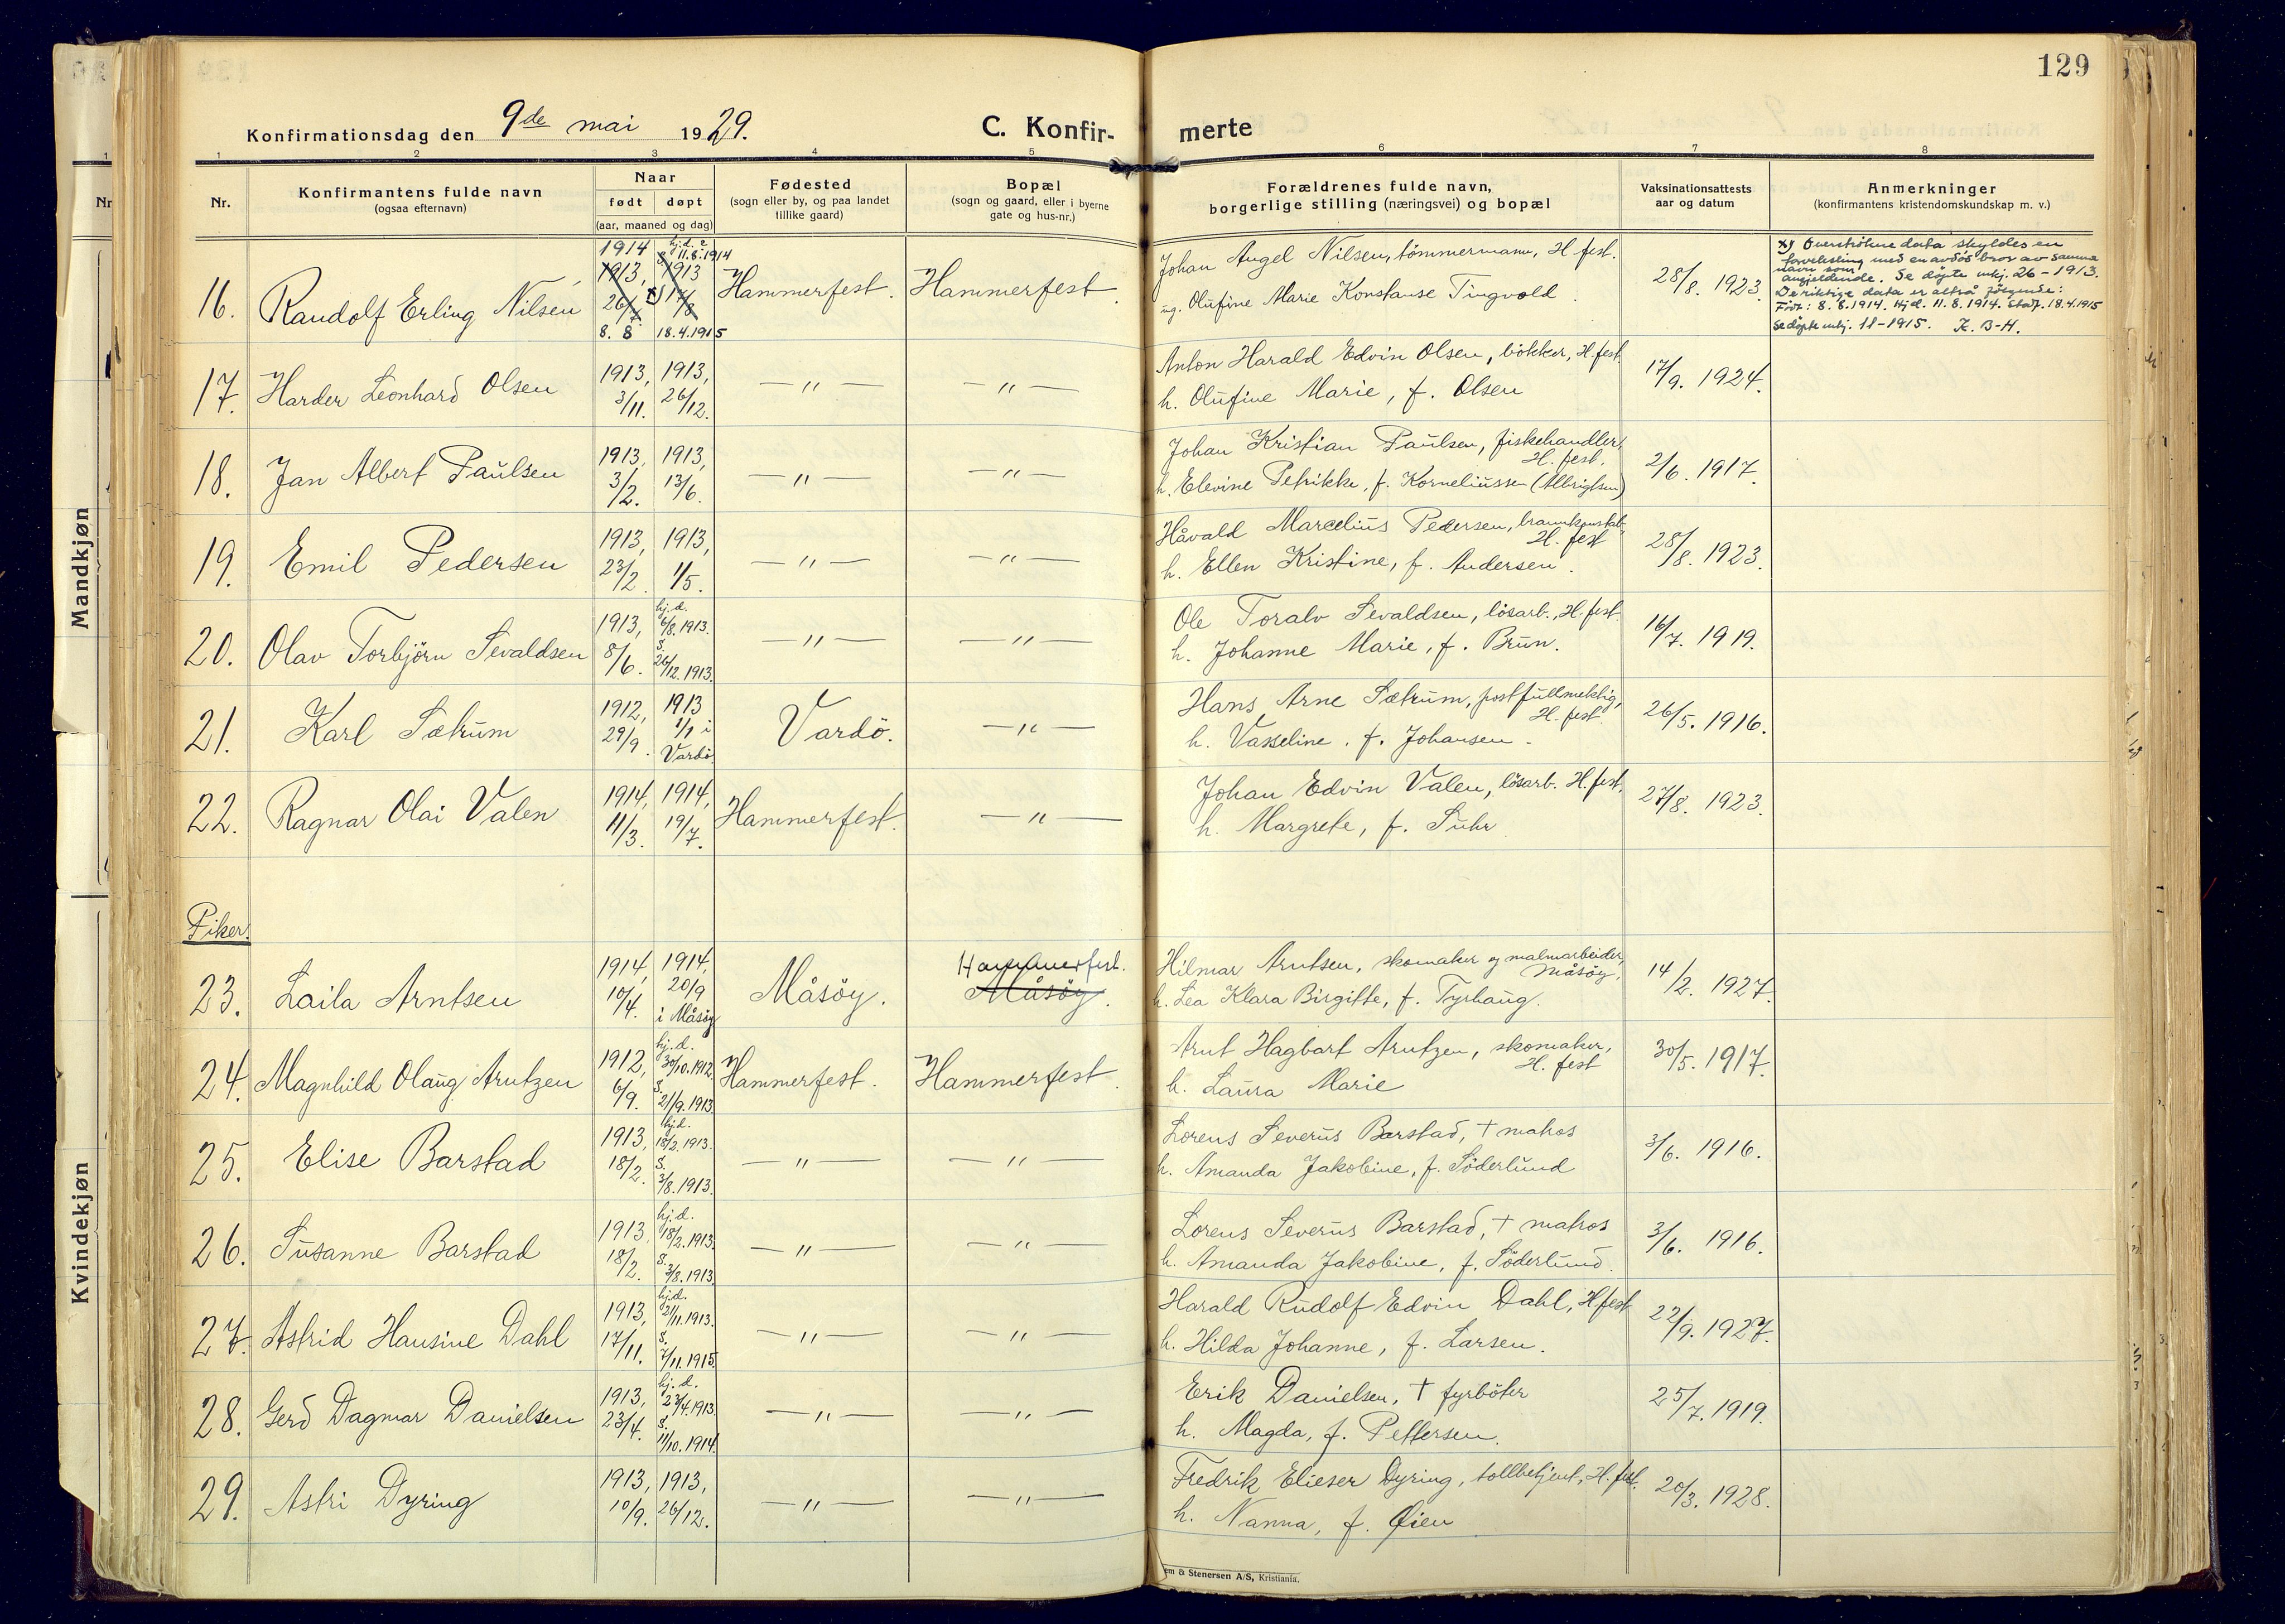 129
Konfirmationsdag den 9de mai 1929.
C. Konfir-
merte
1 2 3 4 5 6 7 8
Nr.
Konfirmantens fulde navn
(ogsaa efternavn)
Naar
født døpt
(aar, maaned og dag)
Fødested
(sogn eller by, og paa landet
tillike gaard)
Bopæl
(sogn og gaard, eller i byerne
gate og hus-nr.)
Forældrenes fulde navn,
borgerlige stilling (næringsvei) og bopæl
Vaksinationsattests
aar og datum
Anmerkninger
(konfirmantens kristendomskundskap m. v.)
Mandkjøn
16. Randolf Erling Nilsen
1914 1913, 26/7 8. 8
hj. d. 11.8.1914 1913 x) 17/8 18.4.1915
Hammerfest. Hammerfest.
Johan Angel Nilsen, tömmermann, H. fest.
ug. Olufine Marie Konstanse Tingvold.
28/8. 1923.
x) Overströkne data skyldes en
forveksling med en avdöd bror av samme
navn som
angjeldende. Se döpte mkj. 26-1913.
De riktige data er altså fölgende:
Född: 8.8.1914. Hj.d. 11.8.1914. Stadf. 18.4.1915
Se döpte mkj. 11-1915. K. B-H.
17. Harder Leonhard Olsen
1913, 3/11. 1913, 26/12.
— " — — " —
Anton Harald Edvin Olsen, bökker, H. fest
h. Olufine Marie, f. Olsen
17/9. 1924.
18. Jan Albert Paulsen
1913, 3/2. 1913, 13/6.
— " — — " —
Johan Kristian Paulsen, fiskehandler,
H. fest.
h. Elevine Petrikke, f. Korneliussen (Albrigtsen)
2/6. 1917.
19. Emil Pedersen
1913, 23/2. 1913, 1/5.
— " — — " —
Håvald Marcelius Pedersen, brannkonstab.,
H. fest
h. Ellen Kristine, f. Andersen.
28/8. 1923.
20. Olav Torbjörn Sevaldsen
1913, 8/6. hj. d. 6/8. 1913. S. 26/12. 1913.
— " — — " —
Ole Toralv Sevaldsen, lösarb., H. fest.
h. Johanne Marie, f. Brun.
16/7. 1919.
21. Karl Sætrum
1912, 29/9. 1913 1/1 i Vardö.
Vardö. — " —
Hans Arne Sætrum, postfullmektig,
H. fest
h. Vasseline, f. Johansen.
26/5. 1916.
22. Ragnar Olai Valen
1914, 11/3. 1914, 19/7.
Hammerfest. — " —
Johan Edvin Valen, lösarb. H. fest,
h. Margrete, f. Suhr.
27/8. 1923.
Piker.
Kvindekjøn
23. Laila Arntsen
1914, 10/4. 1914, 20/9 i Måsöy
Måsöy. Hammerfest. Måsöy.
Hilmar Arntsen, skomaker og malmarbeider,
Måsöy,
h. Lea Klara Birgitte, f. Tyrhaug.
14/2. 1927.
24. Magnhild Olaug Arntzen
1912, 6/9. hj. d. 30/10. 1912. S. 21/9. 1913.
Hammerfest. Hammerfest.
Arnt Hagbart Arntzen, skomaker,
H. fest
h. Laura Marie
30/5. 1917.
25. Elise Barstad
1913, 18/2. hj. d. 18/2. 1913. S. 3/8. 1913.
— " — — " —
Lorens Severus Barstad, † matros
h. Amanda Jakobine, f. Söderlund
3/6. 1916.
26. Susanne Barstad
1913, 18/2. hj. d. 18/2. 1913. S. 3/8. 1913
— " — — " —
Lorens Severus Barstad, † matros
h. Amanda Jakobine, f. Söderlund.
3/6. 1916.
27. Astrid Hansine Dahl
1913, 17/11. hj. d. 21/11. 1913. S. 7/11. 1915.
— " — — " —
Harald Rudolf Edvin Dahl, H fest
h. Hilda Johanne, f. Larsen.
22/9. 1927.
28. Gerd Dagmar Danielsen
1913, 23/4. hj. d. 23/4. 1913. S. 11/10. 1914.
— " — — " —
Erik Danielsen, † fyrböter
h. Magda, f. Pettersen.
25/7. 1919.
29. Astri Dyring
1913, 10/9. 1913, 26/12.
— " — — " —
Fredrik Elieser Dyring, tollbetjent, H. fest.
h. Nanna, f. Øien
20/3. 1928.
em & Stenersen A/S, Kristiania.